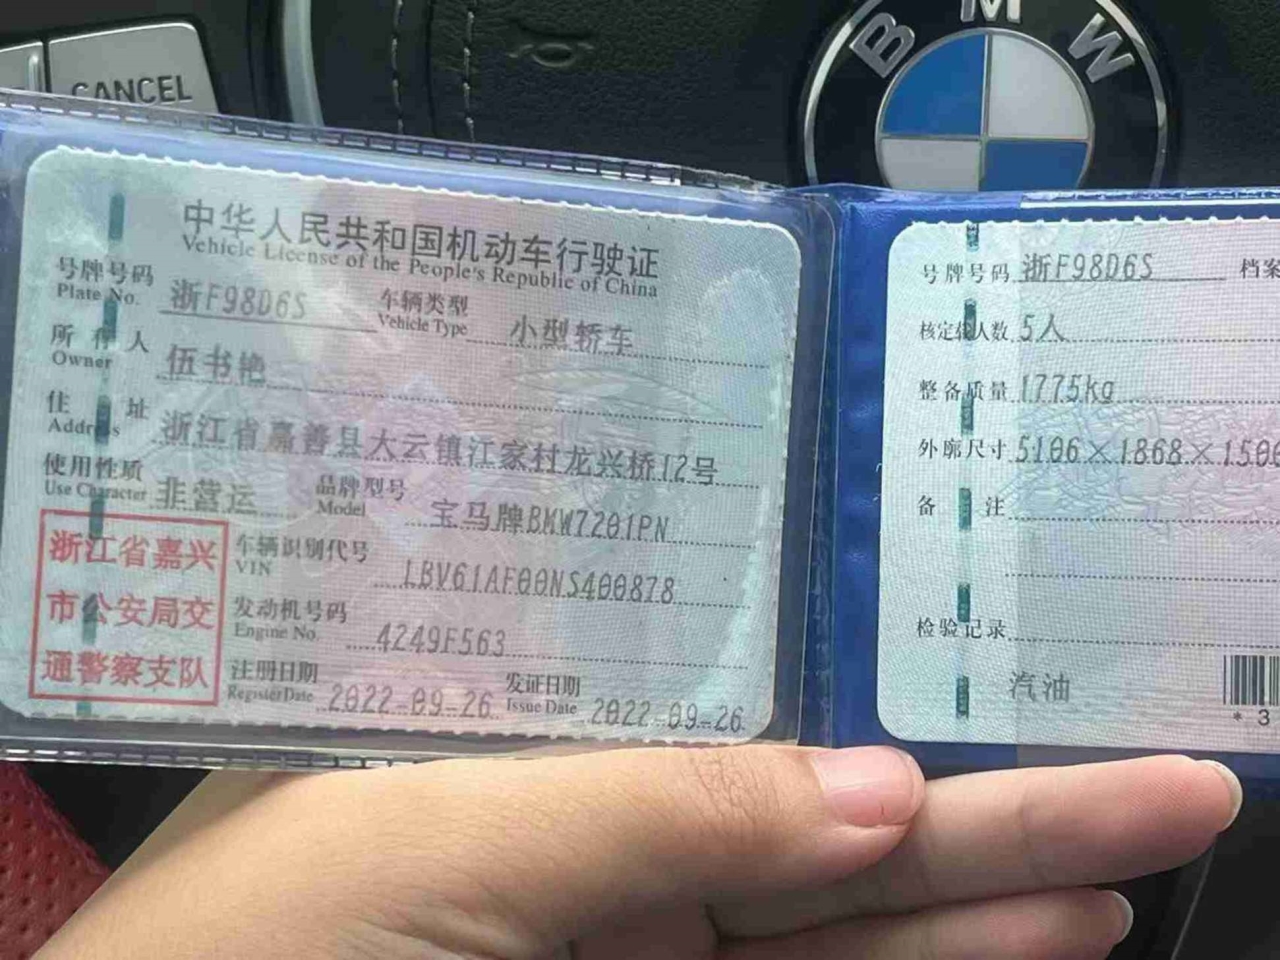 CANCEL
BMW
中华人民共和国机动车行驶证
Vehicle License of the People's Republic of China
号牌号码 浙F98D6S 车辆类型 小型轿车
Plate No. Vehicle Type
所有人 伍书艳
Owner
住址 浙江省嘉善县大云镇江家村龙兴桥12号
Address
使用性质 非营运 品牌型号 宝马牌BMW7201PN
Use Character Model
浙江省嘉兴
市公安局交
通警察支队
车辆识别代号 LBV61AF00NS400878
VIN
发动机号码 4249F563
Engine No.
注册日期 2022-09-26 发证日期 2022-09-26
Register Date Issue Date
号牌号码 浙F98D6S 档案
核定载人数 5人
整备质量 1775kg
外廓尺寸 5106×1868×1500
备注
检验记录
汽油
*3